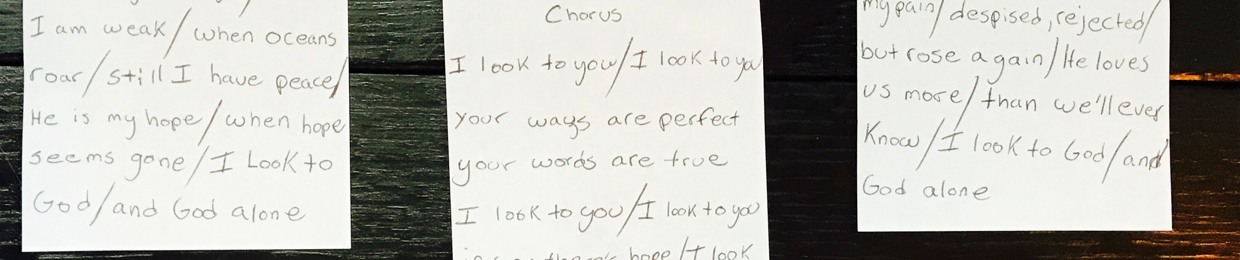 I am weak/when oceans
roar/still I have peace/
He is my hope/when hope
seems gone/I Look to
God/and God alone
Chorus
I look to you/I look to you
your ways are perfect
your words are true
I look to you/I look to you
hope/I look
my pain/despised, rejected/
but rose again/He loves
us more/than we'll ever
Know/I look to God/and
God alone